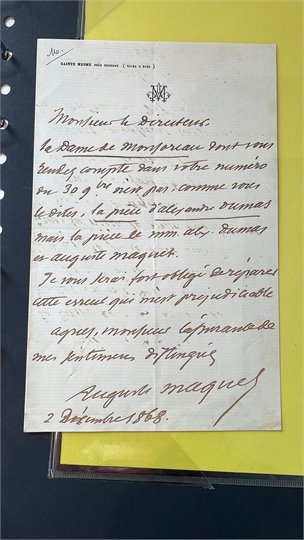 SAINTE MESME PAR DOURDAN (SEINE & OISE)
AM
Monsieur le Directeur
la Dame de Monsoreau dont vous
rendez compte dans votre numéro
du 30 9bre n'est pas comme vous
le dites, la pièce d'alexandre Dumas
mais la pièce de mm alex. Dumas
et auguste maquet.
Je vous serais fort obligé de réparer
cette erreur qui m'est préjudiciable
agréez, monsieur l'assurance de
mes sentimens distingués
Auguste Maquet
2 Décembre 1868.